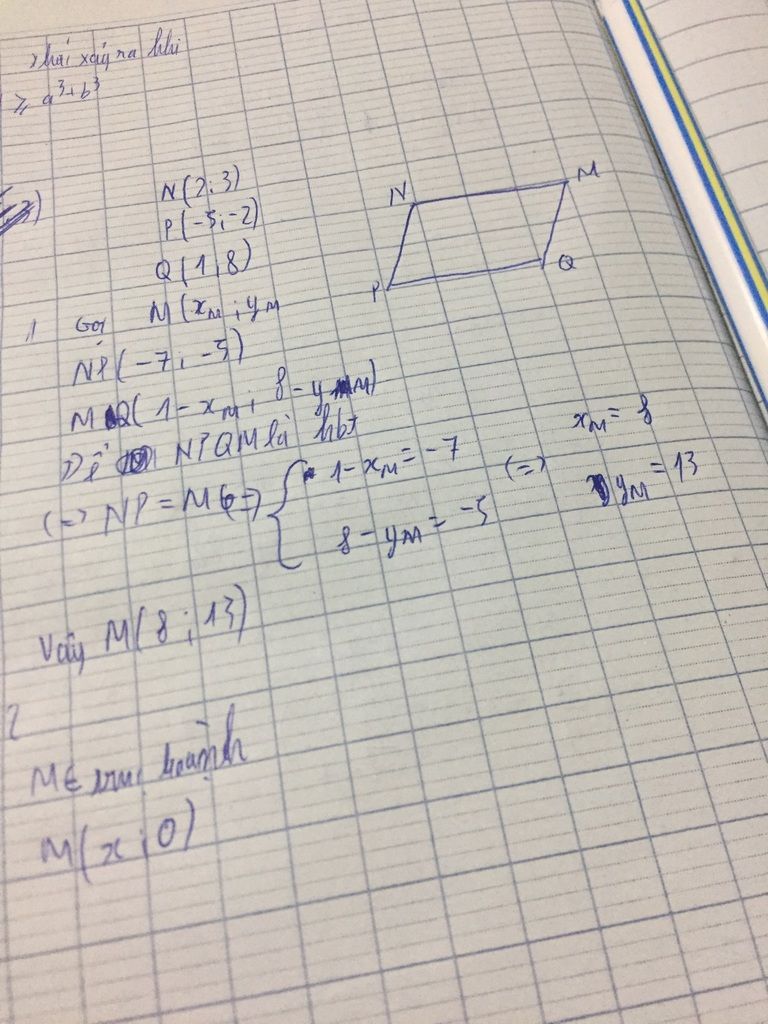 xảy ra khi
≥ a³+b³
N(2;3)
P(-5;-2)
Q(1;8)
N
M
P
Q
1 Gọi M(x_M; y_M
NP(-7; -5)
MQ(1-x_M; 8-y_M)
Để NPQM là hbt
(=) NP = MQ (=) { 1-x_M = -7
8-y_M = -5
(=) x_M = 8
y_M = 13
Vậy M(8; 13)
2
M∈ trục hoành
M(x; 0)